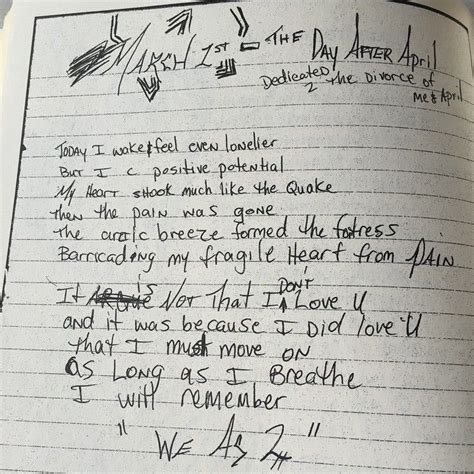 March 1st - The Day After April
Dedicated 2 the Divorce of
Me & April
Today I wake & feel even lonelier
But I c positive potential
My Heart shook much like the Quake
then the pain was gone
the arctic breeze formed the fortress
Barricading my fragile Heart from PAIN
It is Not That I Don't Love U
and it was because I Did love U
that I must move on
as Long as I Breathe
I will remember
"We As 2"